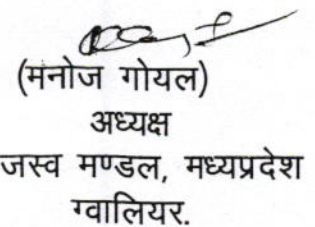 (मनोज गोयल)
अध्यक्ष
जस्व मण्डल, मध्यप्रदेश
ग्वालियर.